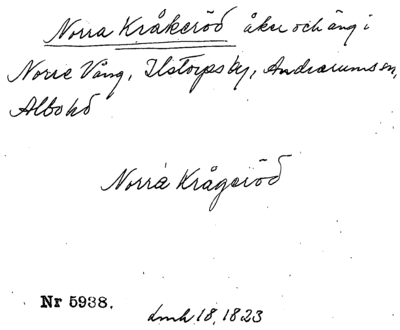 Norra Kråkeröd åker och äng i
Norre Vång, Ilstorps by, Andrarums sn,
Albo hd
Norra Krågeröd
Nr 5938.
lmh 18, 1823